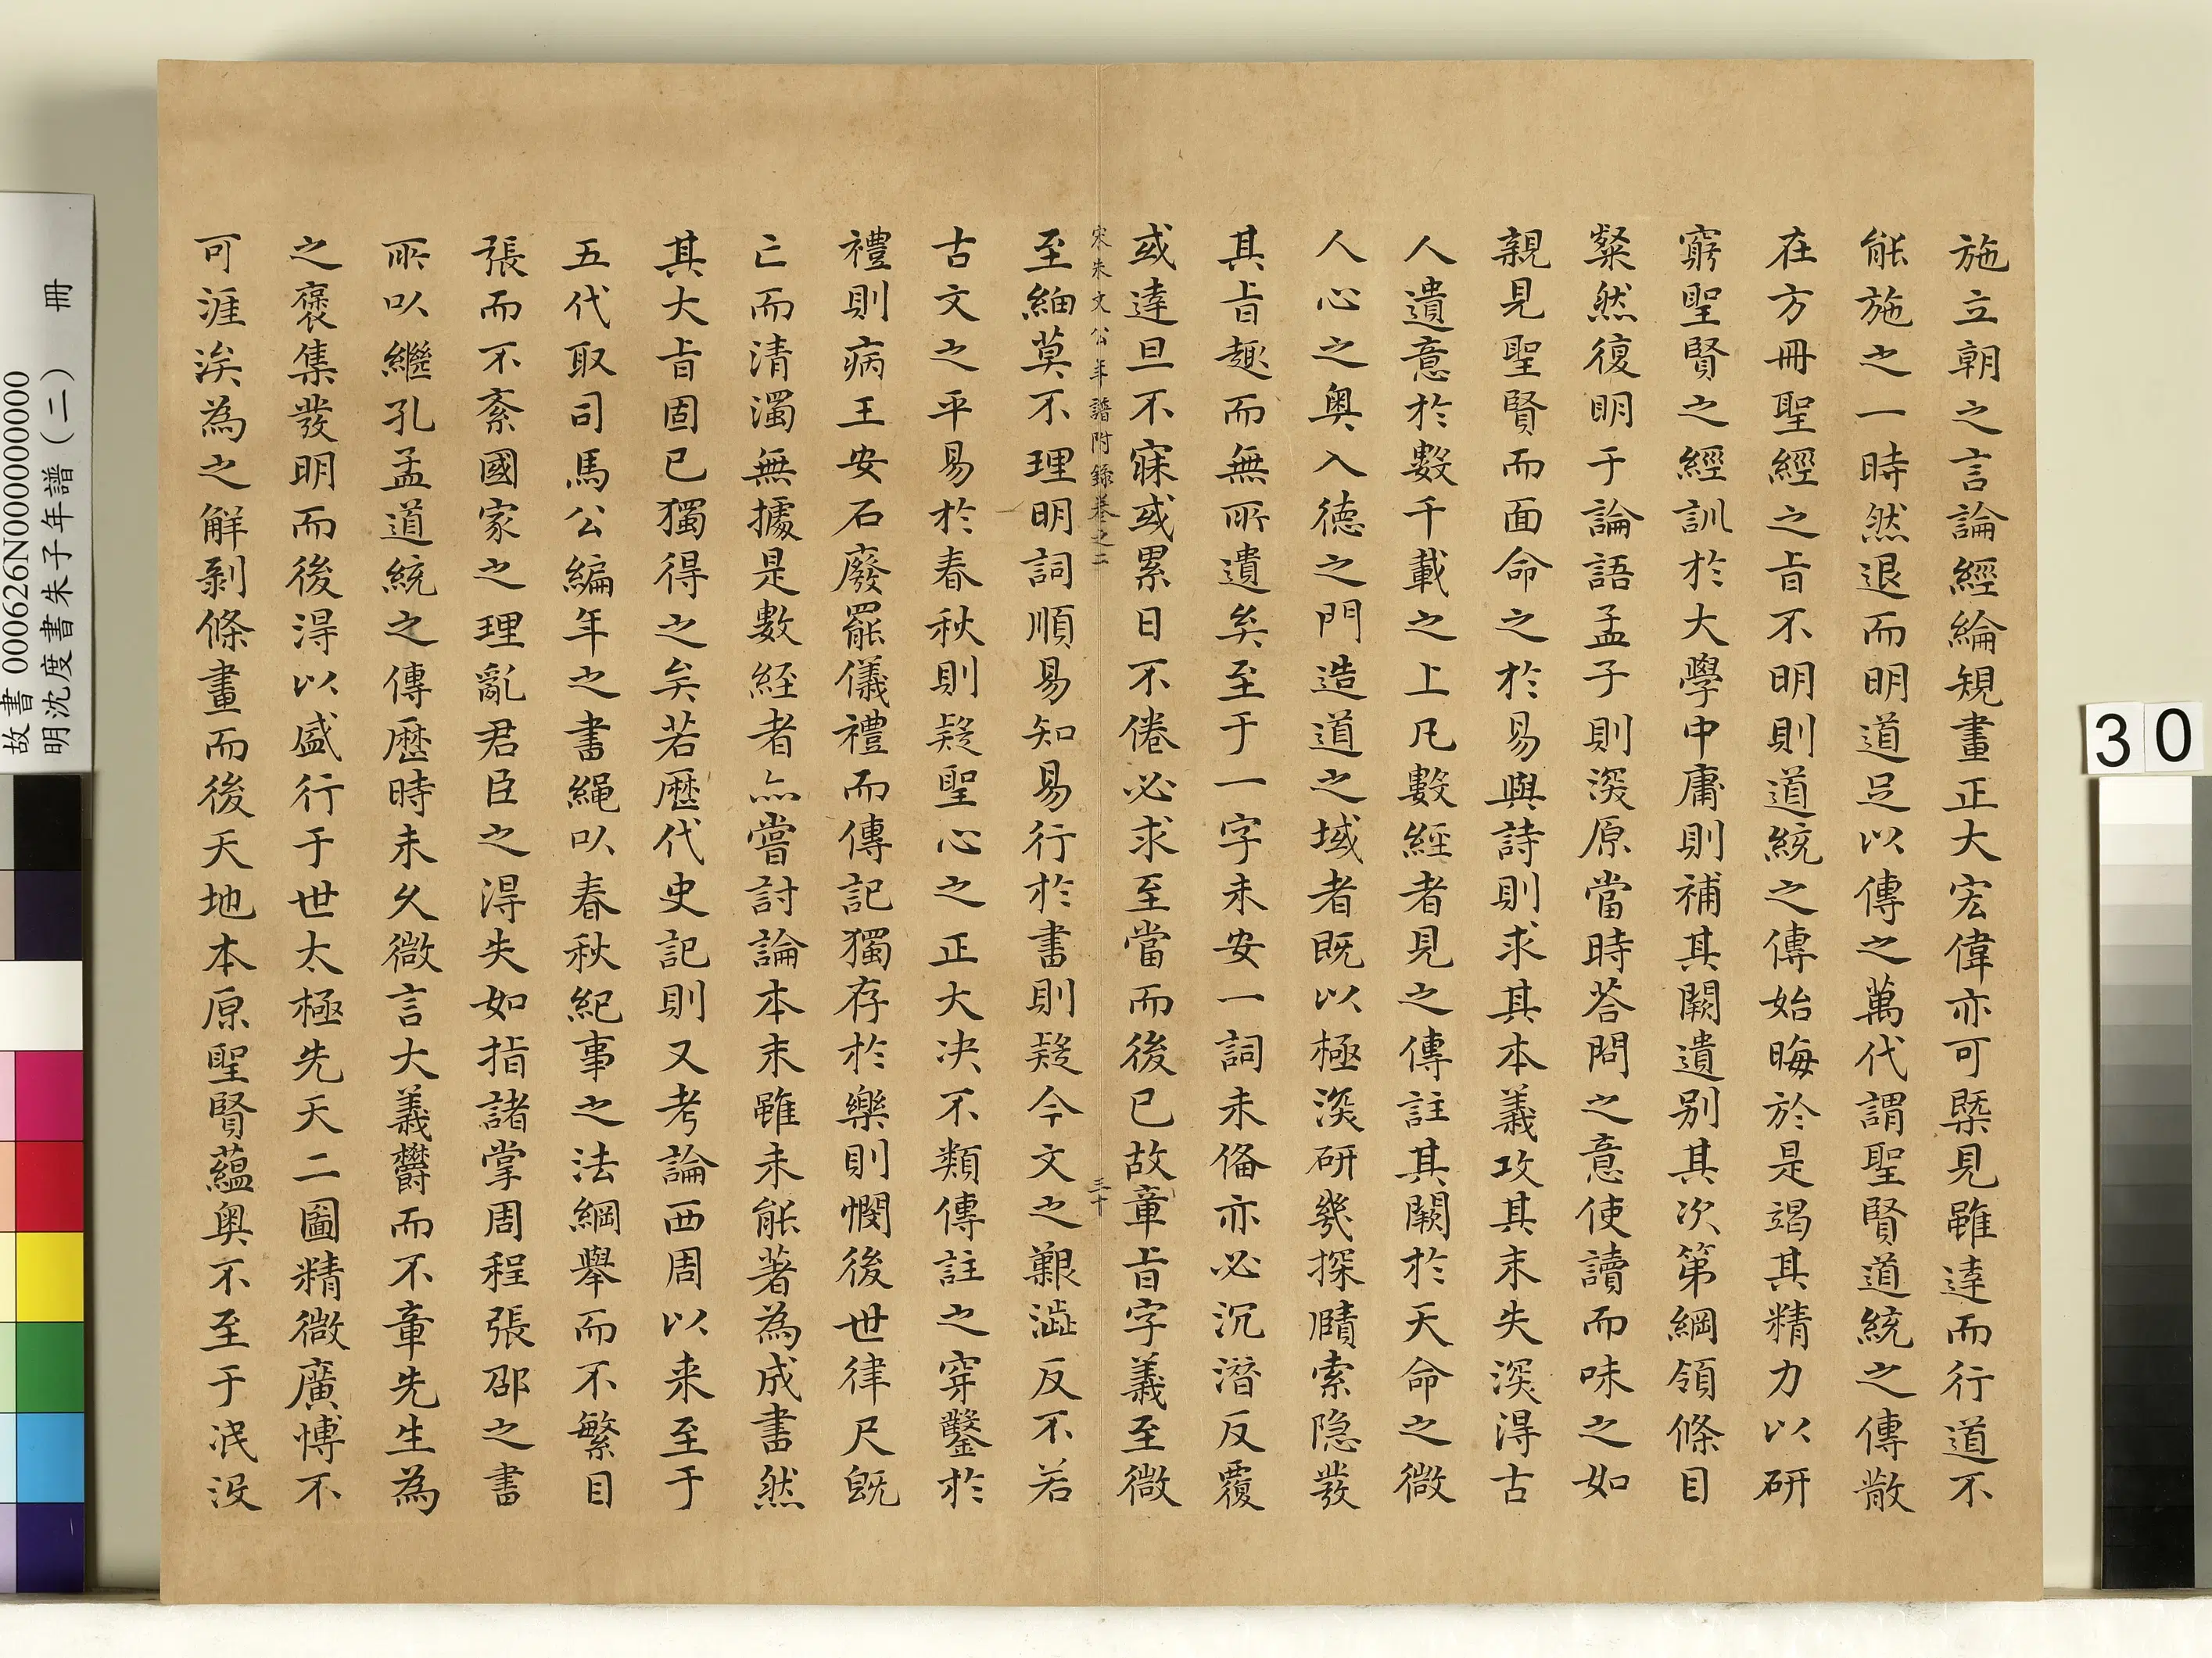 施立朝之言論經綸規畫正大宏偉亦可槩見雖達而行道不
能施之一時然退而明道足以傳之萬代謂聖賢道統之傳散
在方冊聖經之旨不明則道統之傳始晦於是竭其精力以研
窮聖賢之經訓於大學中庸則補其闕遺別其次第綱領條目
粲然復明于論語孟子則深原當時荅問之意使讀而味之如
親見聖賢而面命之於易與詩則求其本義攻其末失深得古
人遺意於數千載之上凡數經者見之傳註其闕於天命之微
人心之奧入德之門造道之域者既以極深研幾探賾索隐發
其旨趣而無所遺矣至于一字未安一詞未俻亦必沉潛反覆
或達旦不寐或累日不倦必求至當而後已故章旨字義至微
宋朱文公年譜附錄卷之二 三十
至細莫不理明詞順易知易行於書則疑今文之艱澁反不若
古文之平易於春秋則疑聖心之正大决不類傳註之穿鑿於
禮則病王安石廢罷儀禮而傳記獨存於樂則憫後世律尺旣
亡而清濁無據是數經者亦嘗討論本末雖未能著為成書然
其大旨固已獨得之矣若歷代史記則又考論西周以来至于
五代取司馬公編年之書繩以春秋紀事之法綱舉而不繁目
張而不紊國家之理亂君臣之得失如指諸掌周程張邵之書
所以繼孔孟道統之傳歷時未久微言大義欝而不章先生為
之裒集發明而後得以盛行于世太極先天二圖精微廣博不
可涯涘為之解剥條畫而後天地本原聖賢蘊奧不至于泯没
故書 000626N000000000
明沈度書朱子年譜（二） 冊
30